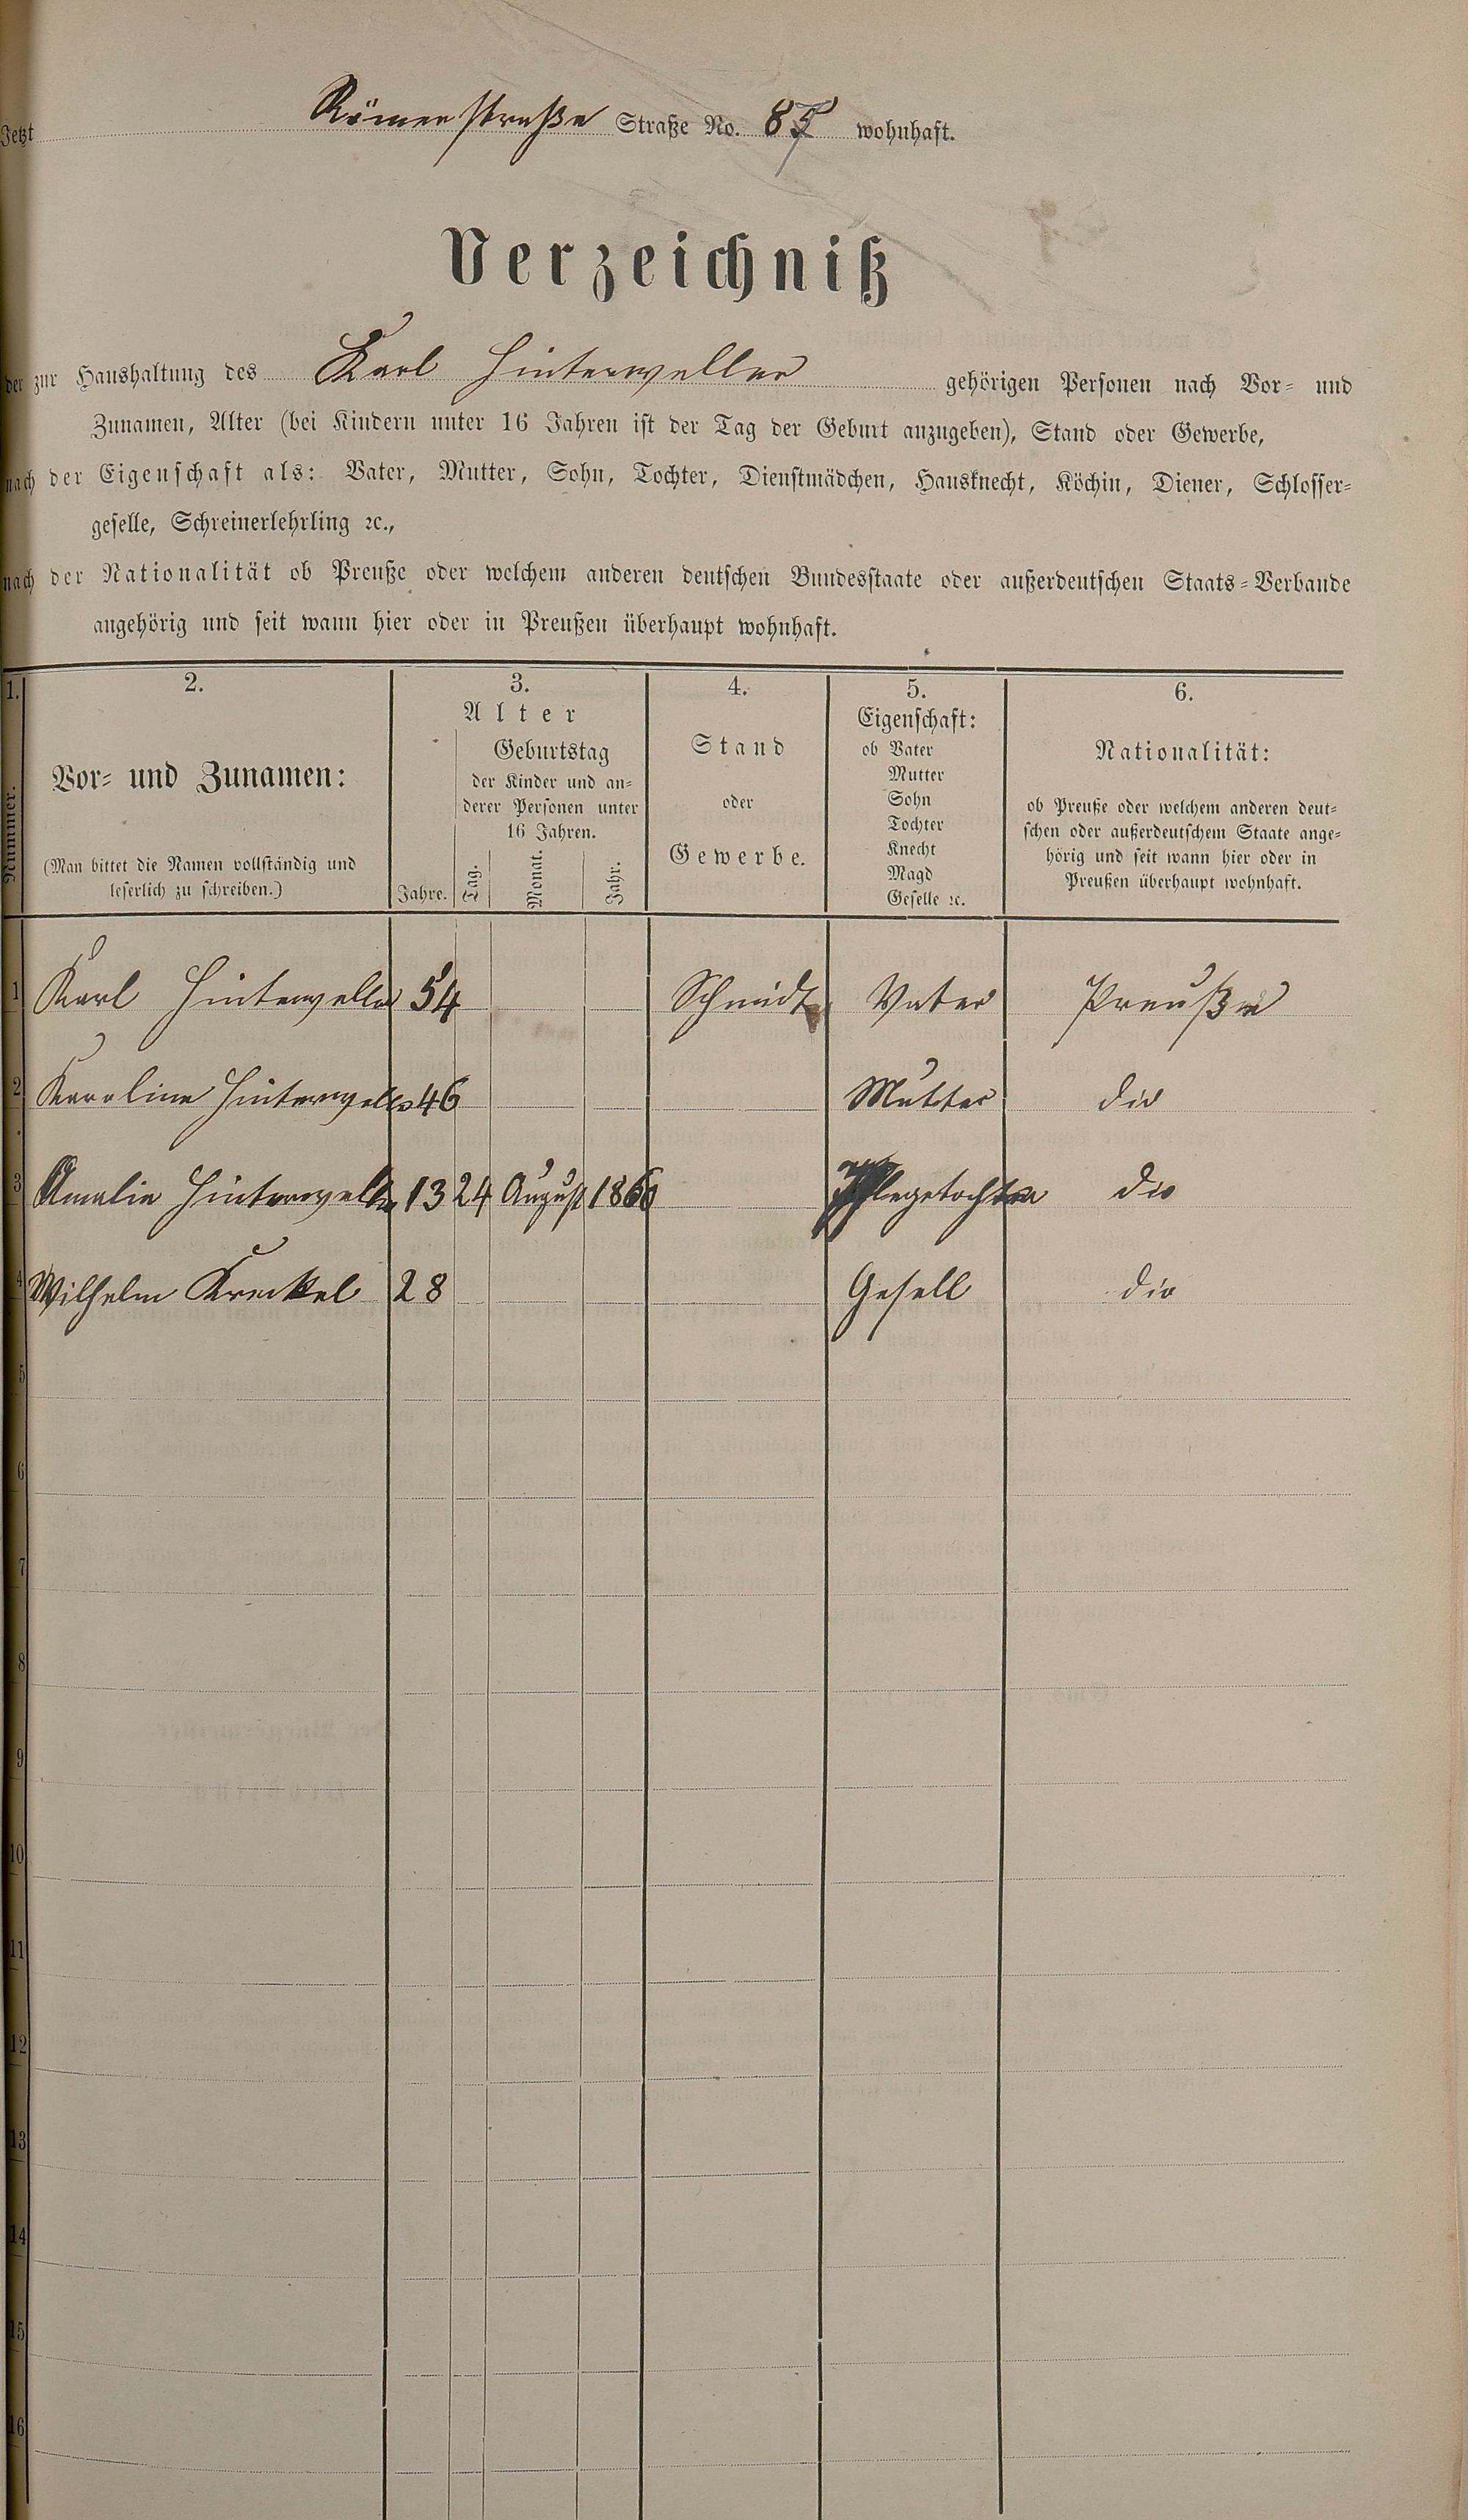 Jetzt Römerstraße Straße No. 85 wohnhaft.
Verzeichniß
der zur Haushaltung des Karl Hinterweller gehörigen Personen nach Vor- und
Zunamen, Alter (bei Kindern unter 16 Jahren ist der Tag der Geburt anzugeben), Stand oder Gewerbe,
nach der Eigenschaft als: Vater, Mutter, Sohn, Tochter, Dienstmädchen, Hausknecht, Köchin, Diener, Schlosser-
geselle, Schreinerlehrling ꝛc.,
nach der Nationalität ob Preuße oder welchem anderen deutschen Bundesstaate oder außerdeutschen Staats-Verbande
angehörig und seit wann hier oder in Preußen überhaupt wohnhaft.
1.
Nummer.
2.
Vor- und Zunamen:
(Man bittet die Namen vollständig und
leserlich zu schreiben.)
3.
Alter
Jahre.
Geburtstag
der Kinder und an-
derer Personen unter
16 Jahren.
Tag.
Monat.
Jahr.
4.
Stand
oder
Gewerbe.
5.
Eigenschaft:
ob Vater
Mutter
Sohn
Tochter
Knecht
Magd
Geselle ꝛc.
6.
Nationalität:
ob Preuße oder welchem anderen deut-
schen oder außerdeutschem Staate ange-
hörig und seit wann hier oder in
Preußen überhaupt wohnhaft.
1 Karl Hinterweller 54 Schmidt Vater Preuße
2 Karoline Hinterweller 46 Mutter dio
3 Amalie Hinterweller 13 24 August 1860 Pflegetochter dio
4 Wilhelm Krekel 28 Gesell dio
5
6
7
8
9
10
11
12
13
14
15
16